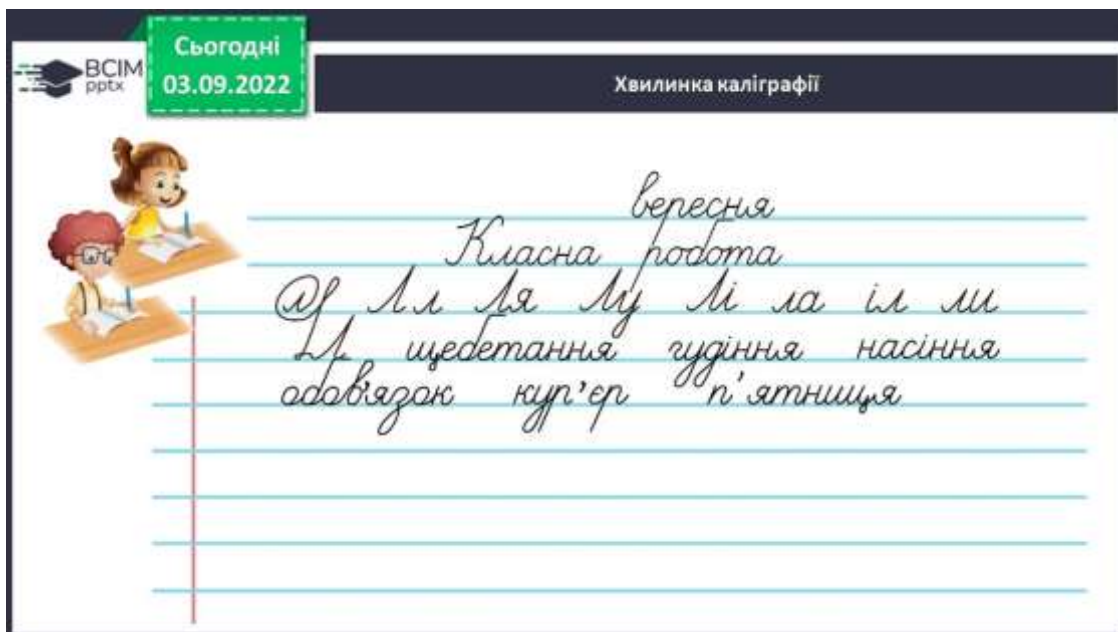 Сьогодні
03.09.2022
BCIM
pptx
Хвилинка каліграфії
вересня
Класна робота
Л л Ля Лу Лі ла іл ли
щебетання гудіння насіння
обов'язок кур'єр п'ятниця